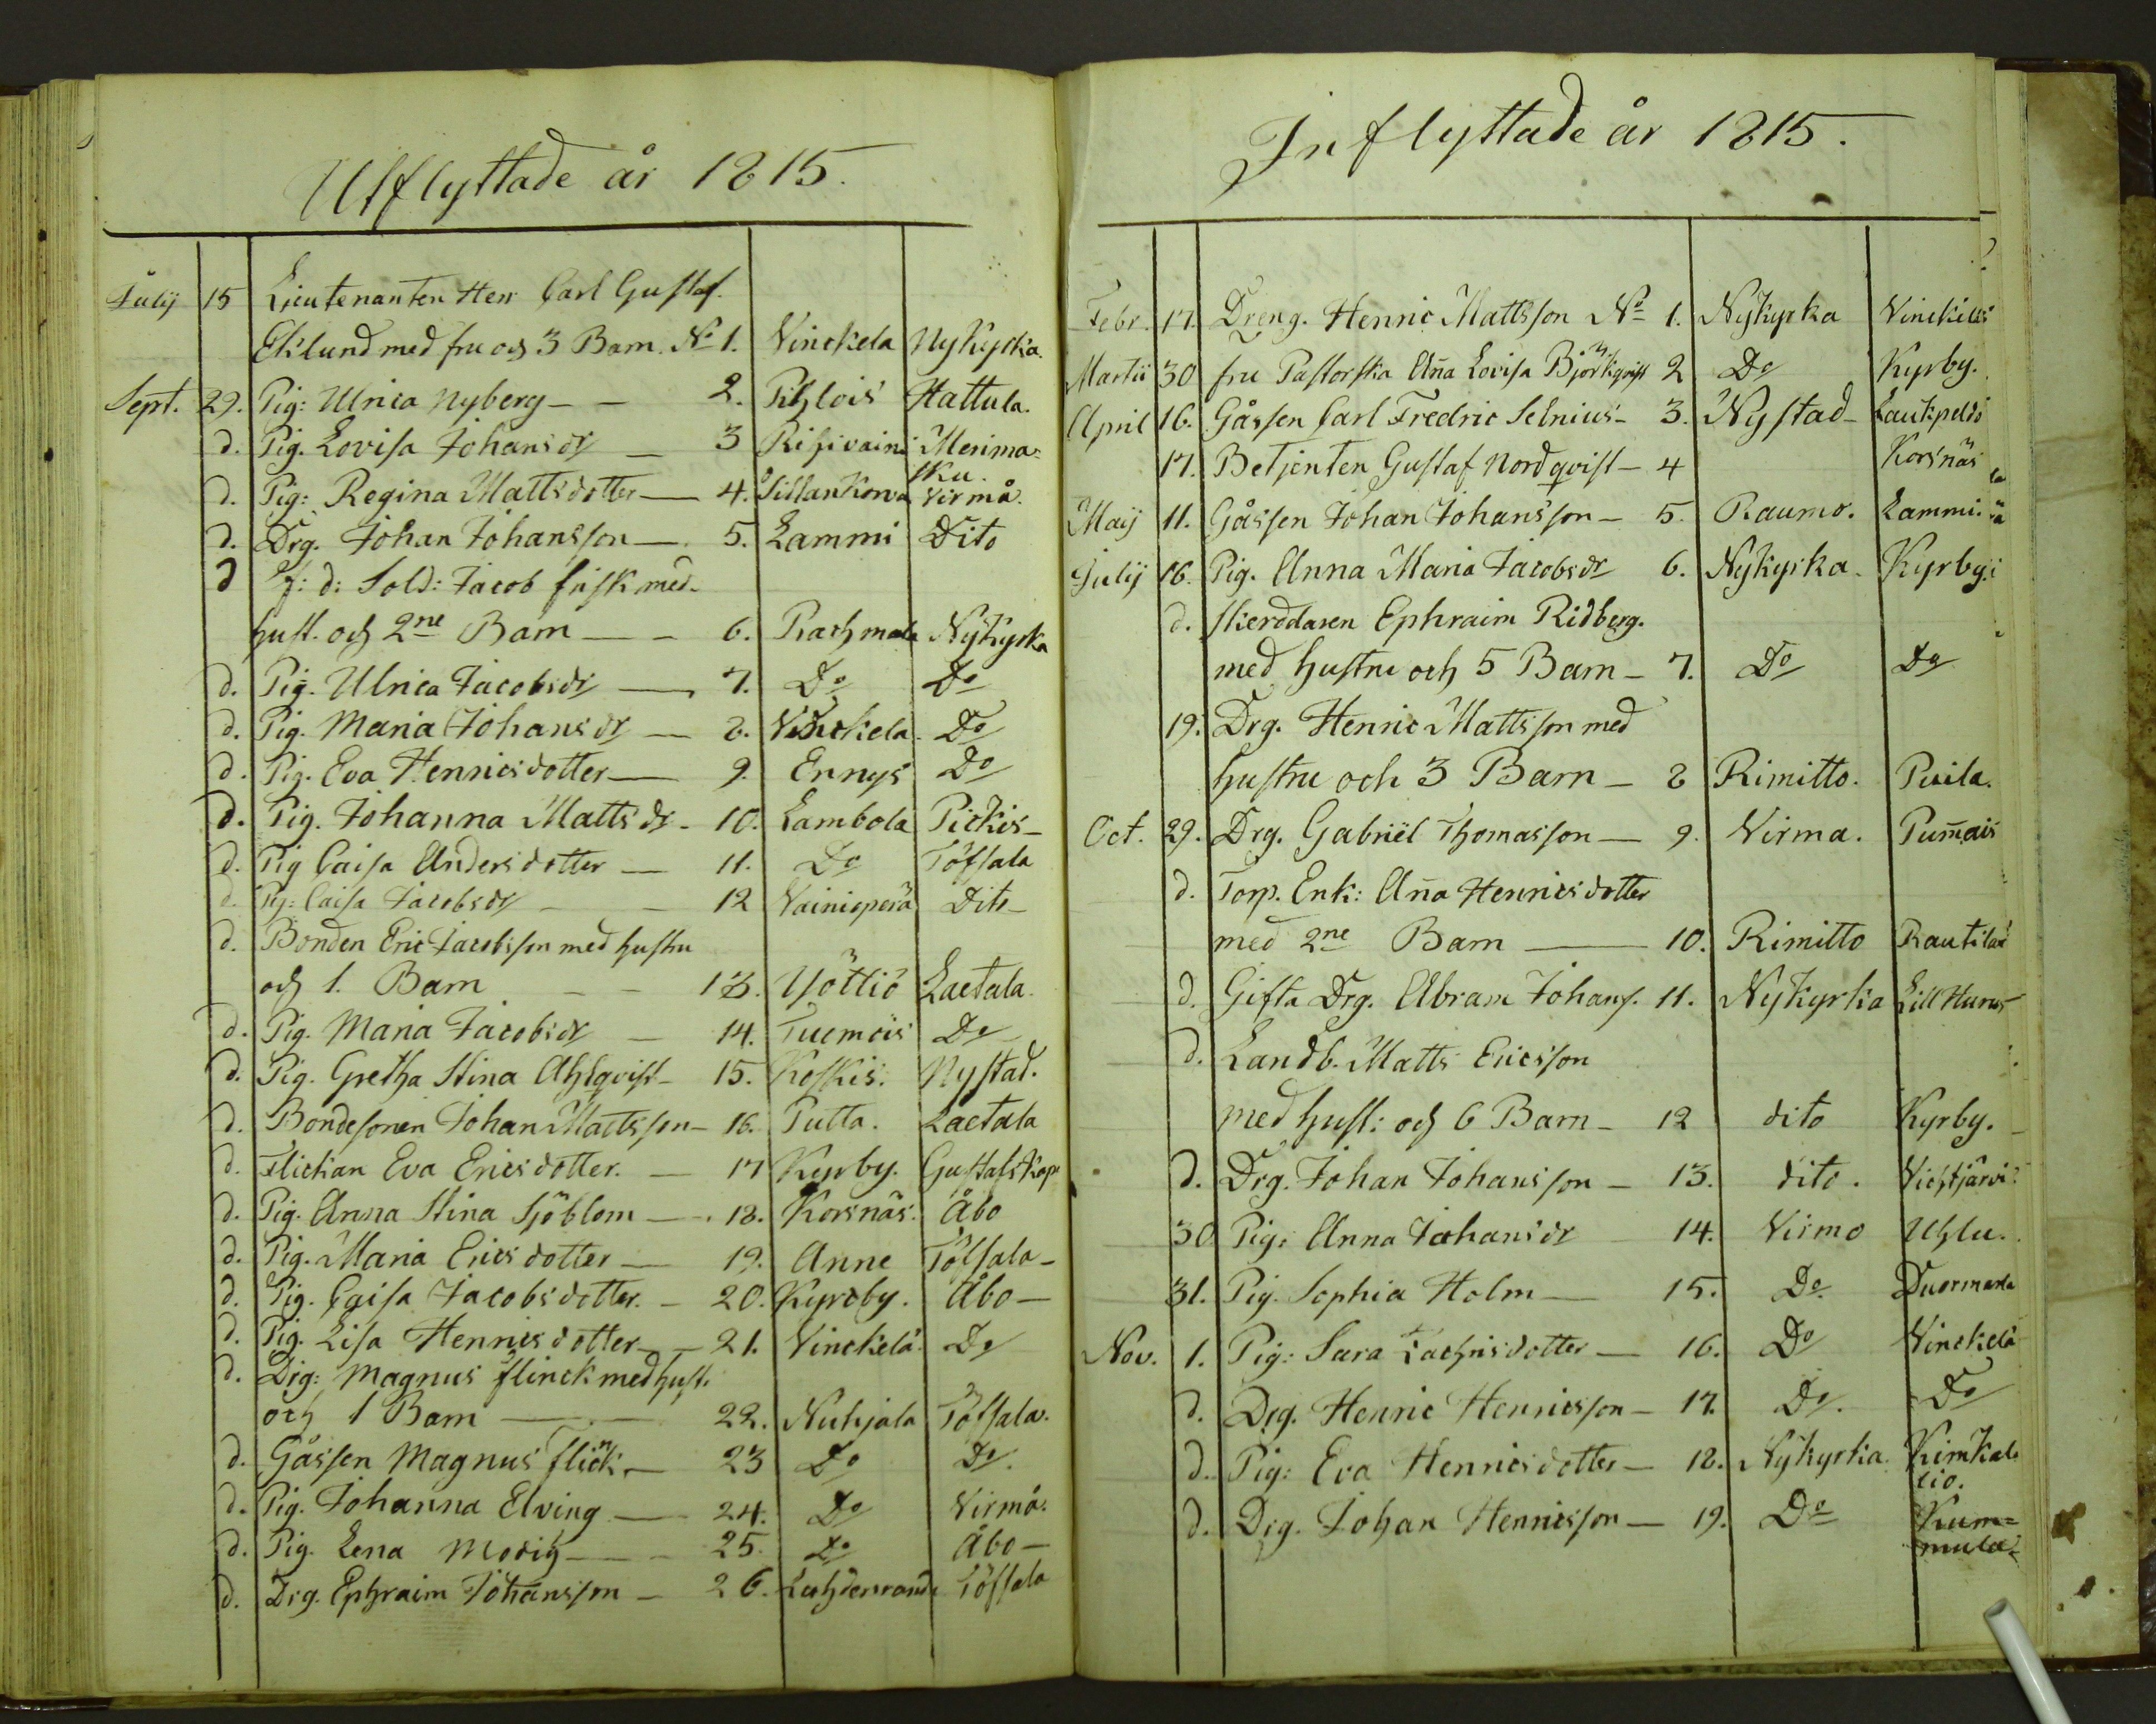 Utflyttade år 1815.
Julij 15 Lieutenanten Herr Carl Gustaf
Eklund med fru och 3 Barn. No 1. Vinckela Nykyrka.
Sept. 29. Pig: Ulrica Nyberg — 2. Pihlois Hattula.
d. Pig. Lovisa Johansdr — 3 Rihivaini Merima=
sku.
d. Pig: Regina Mattsdotter — 4. Sillankorva Virmå.
d. Drg. Johan Johansson — 5. Lammi Dito
d f: d: Sold: Jacob frisk med
hust. och 2ne Barn — 6. Rachmala Nykyrka
d. Pig. Ulrica Jacobsdr — 7. Do Do
d. Pig. Maria Johansdr — 8. Vinckela. Do
d. Pig. Eva Henricsdotter — 9. Ennys Do
d. Pig. Johanna Mattsdr — 10. Lambola Pickis —
d. Pig Caisa Andersdotter — 11. Do Töfsala
d. Pig: Caisa Jacobsdr — 12 Vainioperä Dito —
d. Bonden Eric Jacobsson med hustru
och 1. Barn — 13. Yöttiö Laetala.
d. Pig. Maria Jacobsdr — 14. Tuemois Do
d. Pig. Gretha Stina Ahlqvist — 15. Koskis. Nystad.
d. Bondesonen Johan Mattsson — 16. Putta. Laetala
d. Flickan Eva Ericsdotter. — 17 Kyrby. Gustafs Kap
d. Pig. Anna Stina Sjöblom — 18. Korsnäs. Åbo
d. Pig. Maria Ericsdotter — 19. Anne Töfsala —
d. Pig. Caisa Jacobsdotter. — 20. Kyroby. Åbo —
d. Pig. Lisa Henricsdotter — 21. Vinckelä. Do
d. Drg: Magnus flinck med hust.
och 1 Barn — 22. Nuhjala Töfsala.
d. Gåssen Magnus Flinck — 23 Do Do.
d. Pig. Johanna Elving — 24. Do Virmå.
d. Pig. Lena Modig — 25. Do Åbo —
d. Drg. Ephraim Johansson — 26. Lahdenranda Töfsala
Inflyttade år 1815.
Febr. 17. Dreng. Henric Mattsson No 1. Nykyrka
Martii 30 fru Pastorska Aña Lovisa Björkqvist 2 Do Kyrby.
April 16. Gåssen Carl Fredric Selnius — 3. Nystad —
17. Betjenten Gustaf Nordqvist — 4 Korsnäs
Maij 11. Gåssen Johan Johansson — 5. Raumo. Lammi.
Julij 16. Pig. Anna Maria Jacobsdr 6. Nykyrka. Kyrby.
d. skerddaren Ephraim Ridberg.
med hustru och 5 Barn — 7. Do Do
19. Drg. Henric Mattsson med
hustru och 3 Barn — 8 Rimitto. Puila.
Oct. 29. Drg. Gabriël Thomasson — 9. Virma. Pum̄ais
d. Torp. Enk: Aña Henricsdotter
med 2ne Barn — 10. Rimitto Rautila
d. Gifta Drg. Abram Johans. 11. Nykyrka
d. Landb. Matts Ericsson
med hust: och 6 Barn — 12 dito Kyrby.
d. Drg. Johan Johansson — 13. dito.
30 Pig: Anna Johansdr 14. Virmo Uhlu.
31. Pig. Sophia Holm — 15. Do
Nov. 1. Pig: Sara Zachrisdotter — 16. Do Vinckelä
d. Drg. Henric Henricsson — 17. Do. Do
d. Pig: Eva Henricsdotter — 18. Nykyrka
d. Drg. Johan Henricsson — 19. Do Kum=
mula.